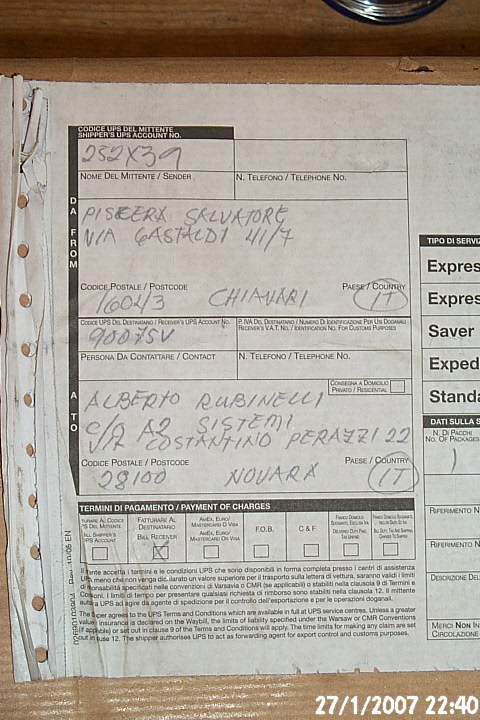 CODICE UPS DEL MITTENTE
SHIPPER'S UPS ACCOUNT NO.
252X39
NOME DEL MITTENTE / SENDER
N. TELEFONO / TELEPHONE NO.
DA
FROM
SALVATORE
VIA GASTALDI 41/7
CODICE POSTALE / POSTCODE
PAESE / COUNTRY
16043 CHIAVARI IT
CODICE UPS DEL DESTINATARIO / RECEIVER'S UPS ACCOUNT NO.
P. IVA DEL DESTINATARIO / NUMERO DI IDENTIFICAZIONE PER USI DOGANALI
RECEIVER'S V.A.T. NO. / IDENTIFICATION NO. FOR CUSTOMS PURPOSES
9007SV
PERSONA DA CONTATTARE / CONTACT
N. TELEFONO / TELEPHONE NO.
CONSEGNA A DOMICILIO
PRIVATO / RESIDENTIAL
A
TO
ALBERTO RUBINELLI
C/O A2 SISTEMI
VIA COSTANTINO PERAZZI 22
CODICE POSTALE / POSTCODE
PAESE / COUNTRY
28100 NOVARA IT
TIPO DI SERVIZ
Expres
Expres
Saver
Exped
Standa
DATI SULLA S
N. DI PACCHI
NO. OF PACKAGES
1
RIFERIMENTO N
RIFERIMENTO N
DESCRIZIONE DEL
MERCI NON IN
CIRCOLAZIONE
TERMINI DI PAGAMENTO / PAYMENT OF CHARGES
FATTURARE AL
DESTINATARIO
BILL RECEIVER
AMEX, EURO/
MASTERCARD O VISA
AMEX, EURO/
MASTERCARD OR VISA
F.O.B.
C & F
ente accetta i termini e le condizioni UPS che sono disponibili in forma completa presso i centri di assistenza
UPS meno che non venga dic arato un valore superiore per il trasporto sulla lettera di vettura, saranno validi i limiti
di responsabilità specificati nelle convenzioni di Varsavia o CMR (se applicabili) o stabiliti nella clausola 9 di Termini e
Condizioni. I limiti di tempo per presentare qualsiasi richiesta di rimborso sono stabiliti nella clausola 12. Il mittente
autorizza UPS ad agire da agente di spedizione per il controllo dell'esportazione e per le operazioni doganali.
The Shipper agrees to the UPS Terms and Conditions which are available in full at UPS service centres. Unless a greater
value insurance is declared on the Waybill, the limits of liability specified under the Warsaw or CMR Conventions
(if applicable) or set out in clause 9 of the Terms and Conditions will apply. The time limits for making any claim are set
out in clause 12. The shipper authorises UPS to act as forwarding agent for export control and customs purposes.
27/1/2007 22:40